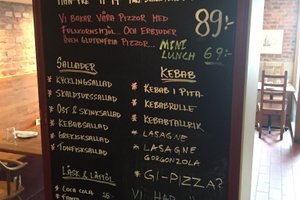 89:-
VI BAKAR VÅRA PIZZOR MED
FULKORNSMJÖL... OCH ERBJUDER
ÄVEN GLUTENFRIA PIZZOR...
MINI
LUNCH 69:-
SALLADER
* KYCKLINGSALLAD
* SKALDJURSSALLAD
* OST & SKINKSALLAD
* KEBABSALLAD
* GREKISKSALLAD
* TONFISKSALLAD
KEBAB
* KEBAB I PITA
* KEBABRULLE
* KEBABTALLRIK
* LASAGNE
* LASAGNE
GORGONZOLA
* GI-PIZZA?
LÄSK & LÄTTÖL
COCA COLA
FANTA
VI HAR